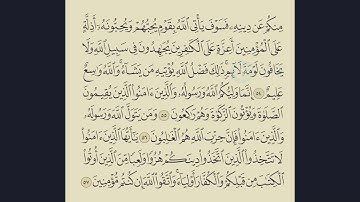 مِنكُمْ عَن دِينِهِۦ فَسَوْفَ يَأْتِى ٱللَّهُ بِقَوْمٍ يُحِبُّهُمْ وَيُحِبُّونَهُۥٓ أَذِلَّةٍ
عَلَى ٱلْمُؤْمِنِينَ أَعِزَّةٍ عَلَى ٱلْكَٰفِرِينَ يُجَٰهِدُونَ فِى سَبِيلِ ٱللَّهِ وَلَا
يَخَافُونَ لَوْمَةَ لَآئِمٍ ذَٰلِكَ فَضْلُ ٱللَّهِ يُؤْتِيهِ مَن يَشَآءُ وَٱللَّهُ وَٰسِعٌ
عَلِيمٌ ٥٤ إِنَّمَا وَلِيُّكُمُ ٱللَّهُ وَرَسُولُهُۥ وَٱلَّذِينَ ءَامَنُوا۟ ٱلَّذِينَ يُقِيمُونَ
ٱلصَّلَوٰةَ وَيُؤْتُونَ ٱلزَّكَوٰةَ وَهُمْ رَٰكِعُونَ ٥٥ وَمَن يَتَوَلَّ ٱللَّهَ وَرَسُولَهُۥ
وَٱلَّذِينَ ءَامَنُوا۟ فَإِنَّ حِزْبَ ٱللَّهِ هُمُ ٱلْغَٰلِبُونَ ٥٦ يَٰٓأَيُّهَا ٱلَّذِينَ ءَامَنُوا۟
لَا تَتَّخِذُوا۟ ٱلَّذِينَ ٱتَّخَذُوا۟ دِينَكُمْ هُزُوًا وَلَعِبًا مِّنَ ٱلَّذِينَ أُوتُوا۟
ٱلْكِتَٰبَ مِن قَبْلِكُمْ وَٱلْكُفَّارَ أَوْلِيَآءَ وَٱتَّقُوا۟ ٱللَّهَ إِن كُنتُم مُّؤْمِنِينَ ٥٧